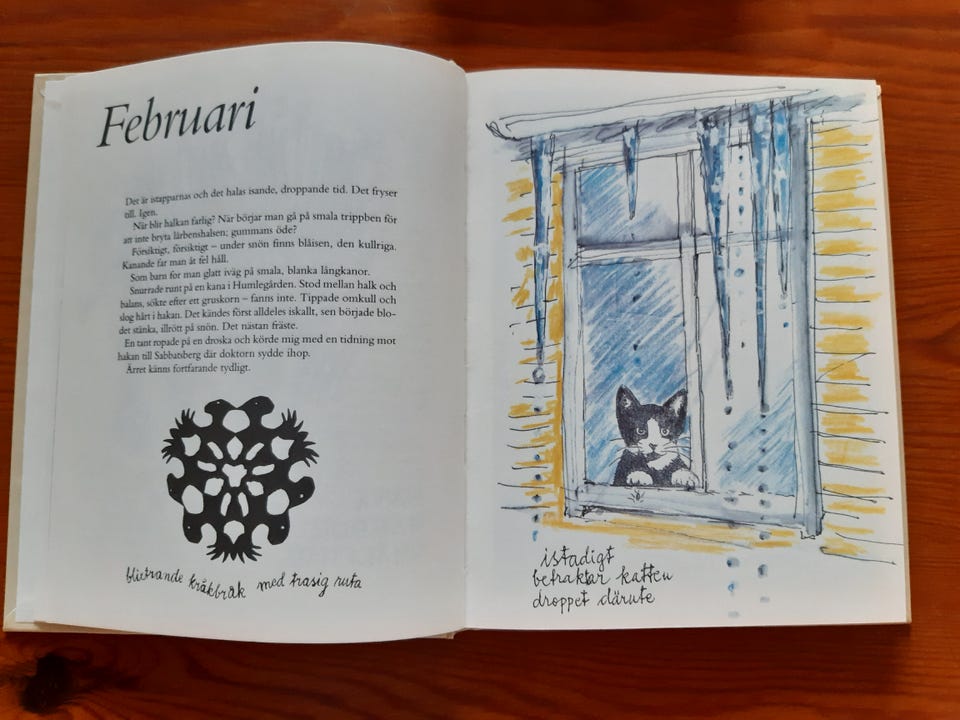 Februari
Det är istapparnas och det halas isande, droppande tid. Det fryser
till. Igen.
När blir halkan farlig? När börjar man gå på smala trippben för
att inte bryta lårbenshalsen; gummans öde?
Försiktigt, försiktigt – under snön finns blåisen, den kullriga.
Kanande far man åt fel håll.
Som barn for man glatt iväg på smala, blanka långkanor.
Snurrade runt på en kana i Humlegården. Stod mellan halk och
balans, sökte efter ett gruskorn – fanns inte. Tippade omkull och
slog hårt i hakan. Det kändes först alldeles iskallt, sen började blo-
det stänka, illrött på snön. Det nästan fräste.
En tant ropade på en droska och körde mig med en tidning mot
hakan till Sabbatsberg där doktorn sydde ihop.
Ärret känns fortfarande tydligt.
kråkbråk med trasig ruta
istadigt
betraktar katten
droppet därute